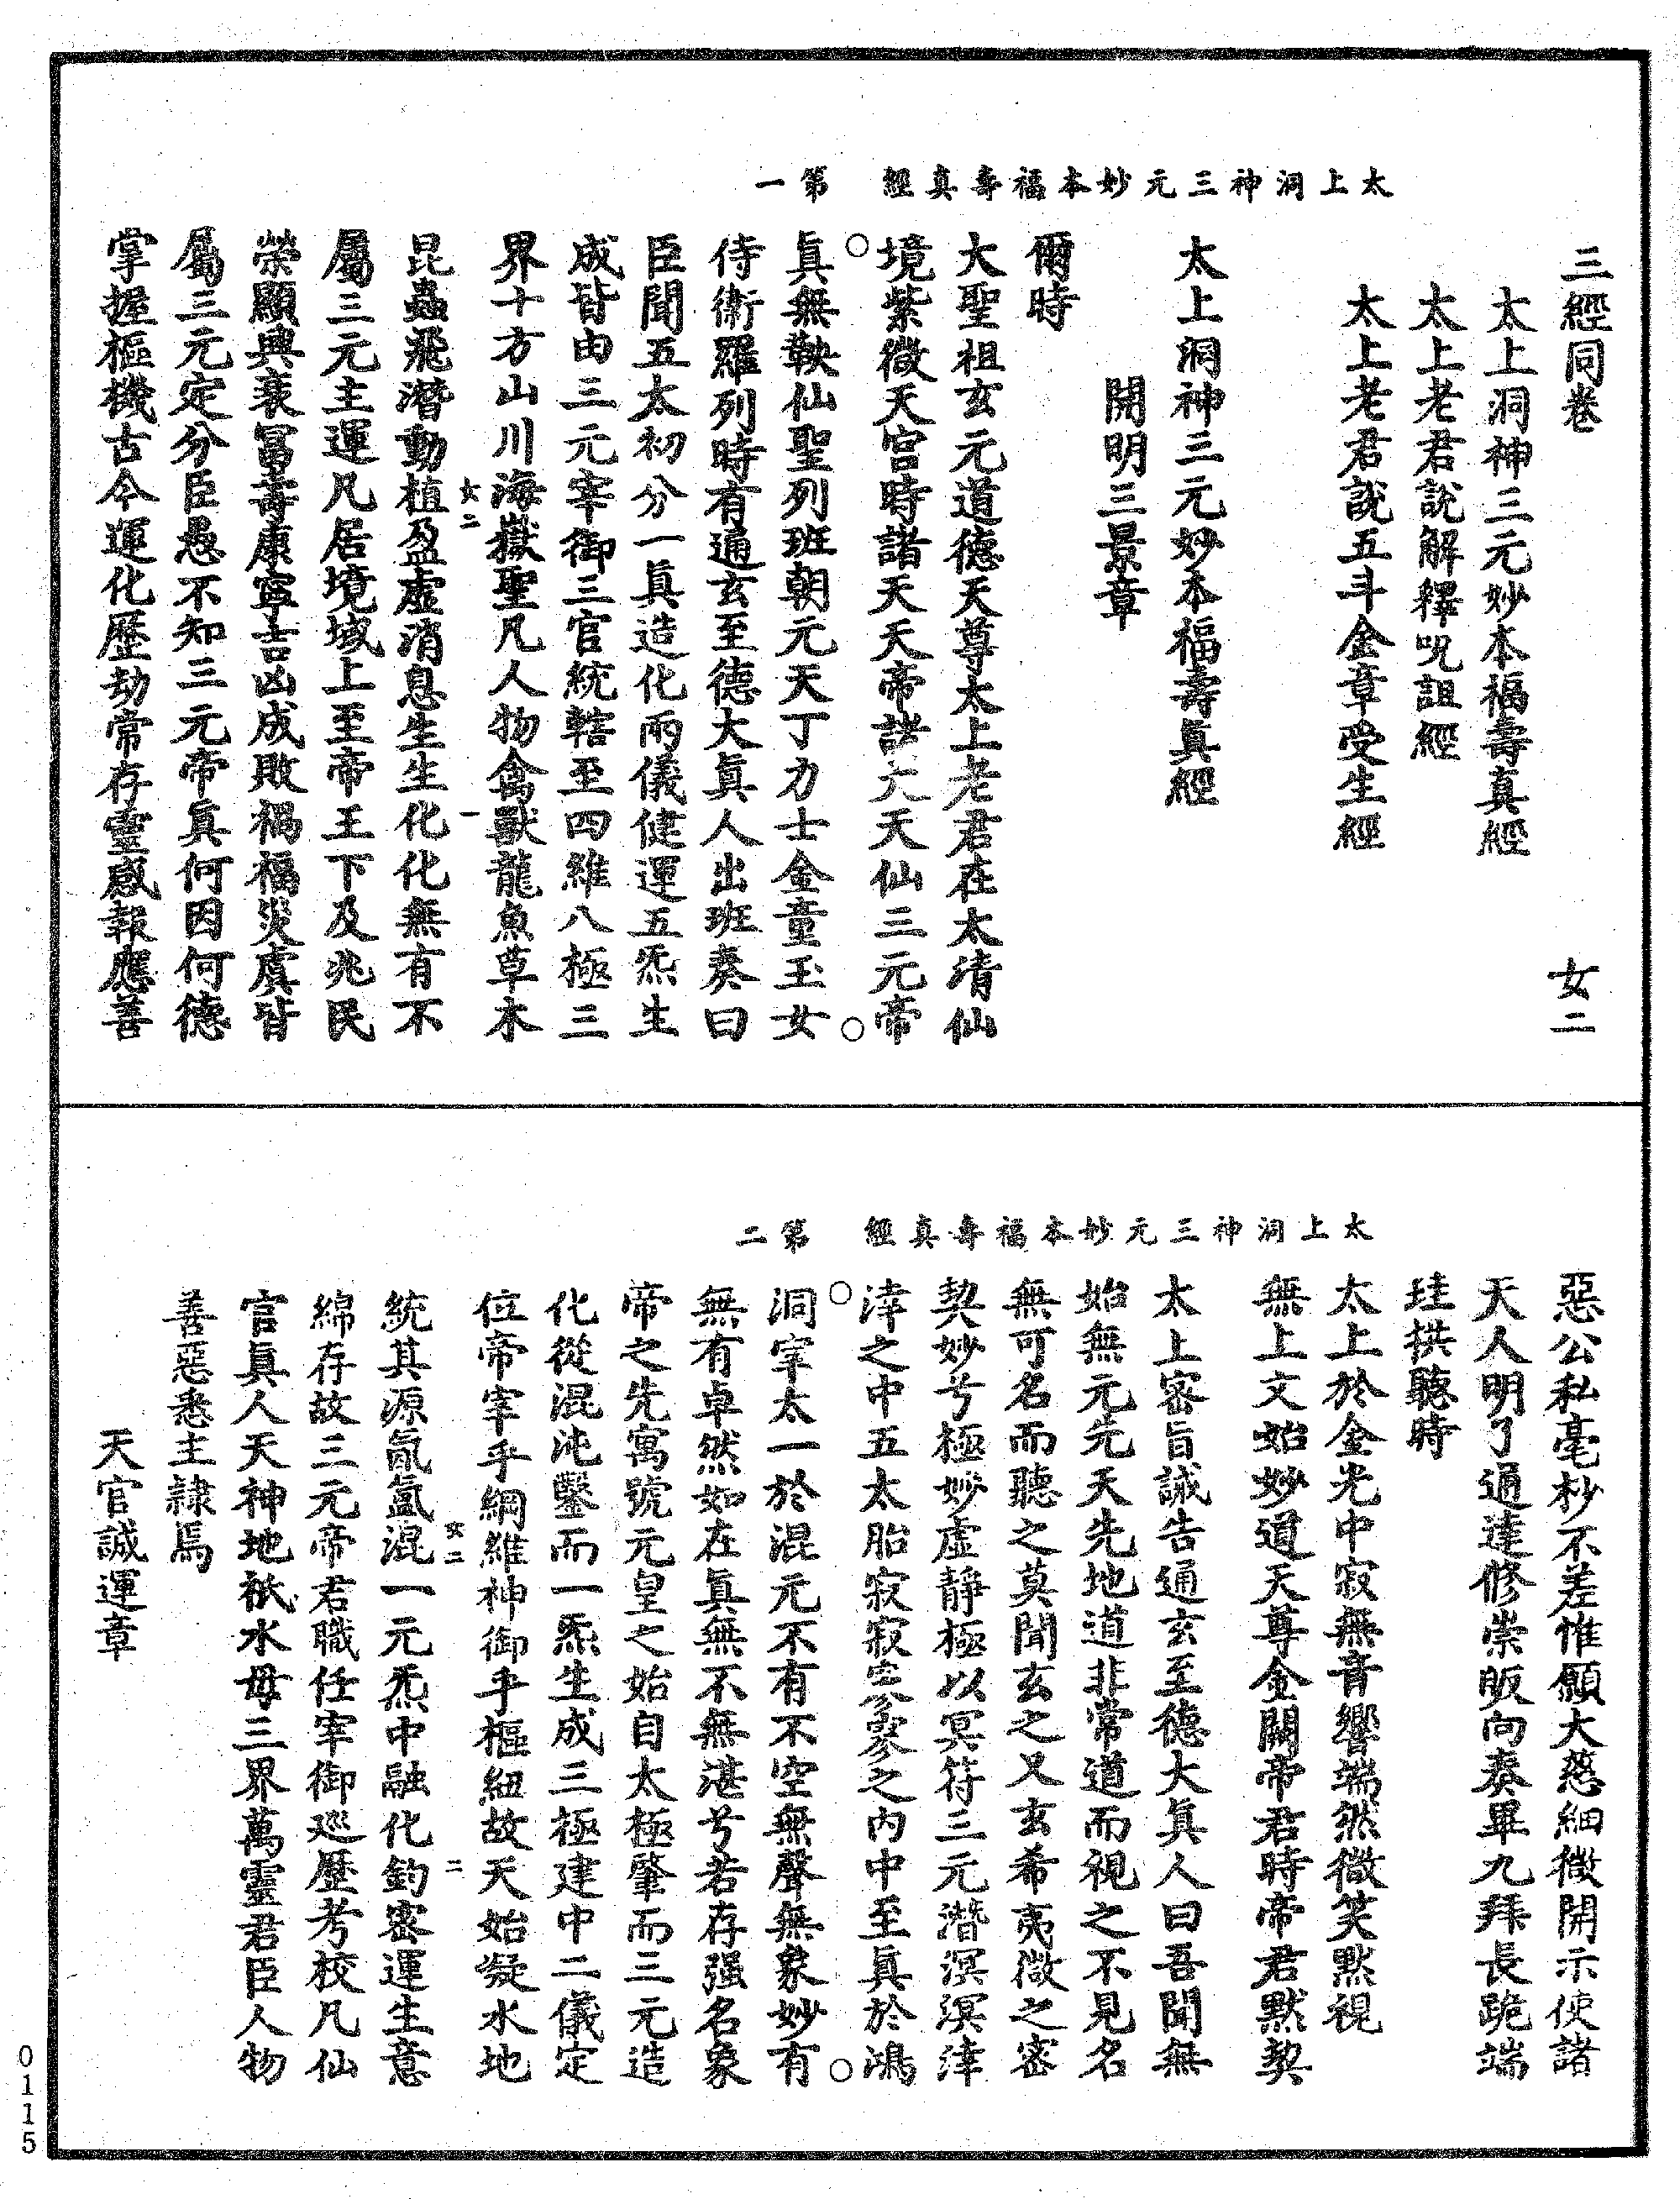 太上洞神三元妙本福壽真經　第一
三經同卷　女二
太上洞神三元妙本福壽真經
太上老君說解釋呪詛經
太上老君說五斗金章受生經
太上洞神三元妙本福壽眞經
開明三景章
爾時
大聖祖玄元道德天尊太上老君在太清仙
境紫微天宮時諸天天帝諸大天仙三元帝
眞無鞅仙聖列班朝元天丁力士金童玉女
侍衛羅列時有通玄至德大眞人出班奏曰
臣聞五太初分一眞造化兩儀健運五炁生
成皆由三元宰御三官統轄至四維八極三
界十方山川海嶽聖凡人物禽獸龍魚草木
女二　一
昆蟲飛潛動植盈虛消息生生化化無有不
屬三元主運凡居境域上至帝王下及兆民
榮顯興衰冨壽康寧吉凶成敗禍福災虞皆
屬三元定分臣愚不知三元帝眞何因何德
掌握樞機古今運化歷劫常存靈感報應善
太上洞神三元妙本福壽真經　第二
惡公私毫杪不差惟願大慈細微開示使諸
天人明了通達修崇皈向奏畢九拜長跪端
珪拱聽時
太上於金光中寂無音響端然微笑默視
無上文始妙道天尊金闕帝君時帝君默契
太上密旨誠告通玄至德大眞人曰吾聞無
始無元元天先地道非常道而視之不見名
無可名而聽之莫聞玄之又玄希夷微之密
契妙兮極妙虛靜極以冥符三元潛溟溟涬
涬之中五太胎寂寂寥寥之內中至眞於鴻
洞宰太一於混元不有不空無聲無象妙有
無有卓然如在眞無不無湛兮若存强名象
帝之先寓號元皇之始自太極肇而三元造
化從混沌鑿而一炁生成三極建中二儀定
位帝宰乎綱維神御乎樞紐故天始凝水地
女二　二
統其源氤氳混一元炁中融化鈞密運生意
綿存故三元帝君職任宰御巡歷考校凡仙
官眞人天神地祇水母三界萬靈君臣人物
善惡悉主隷焉
天官誠運章
0115